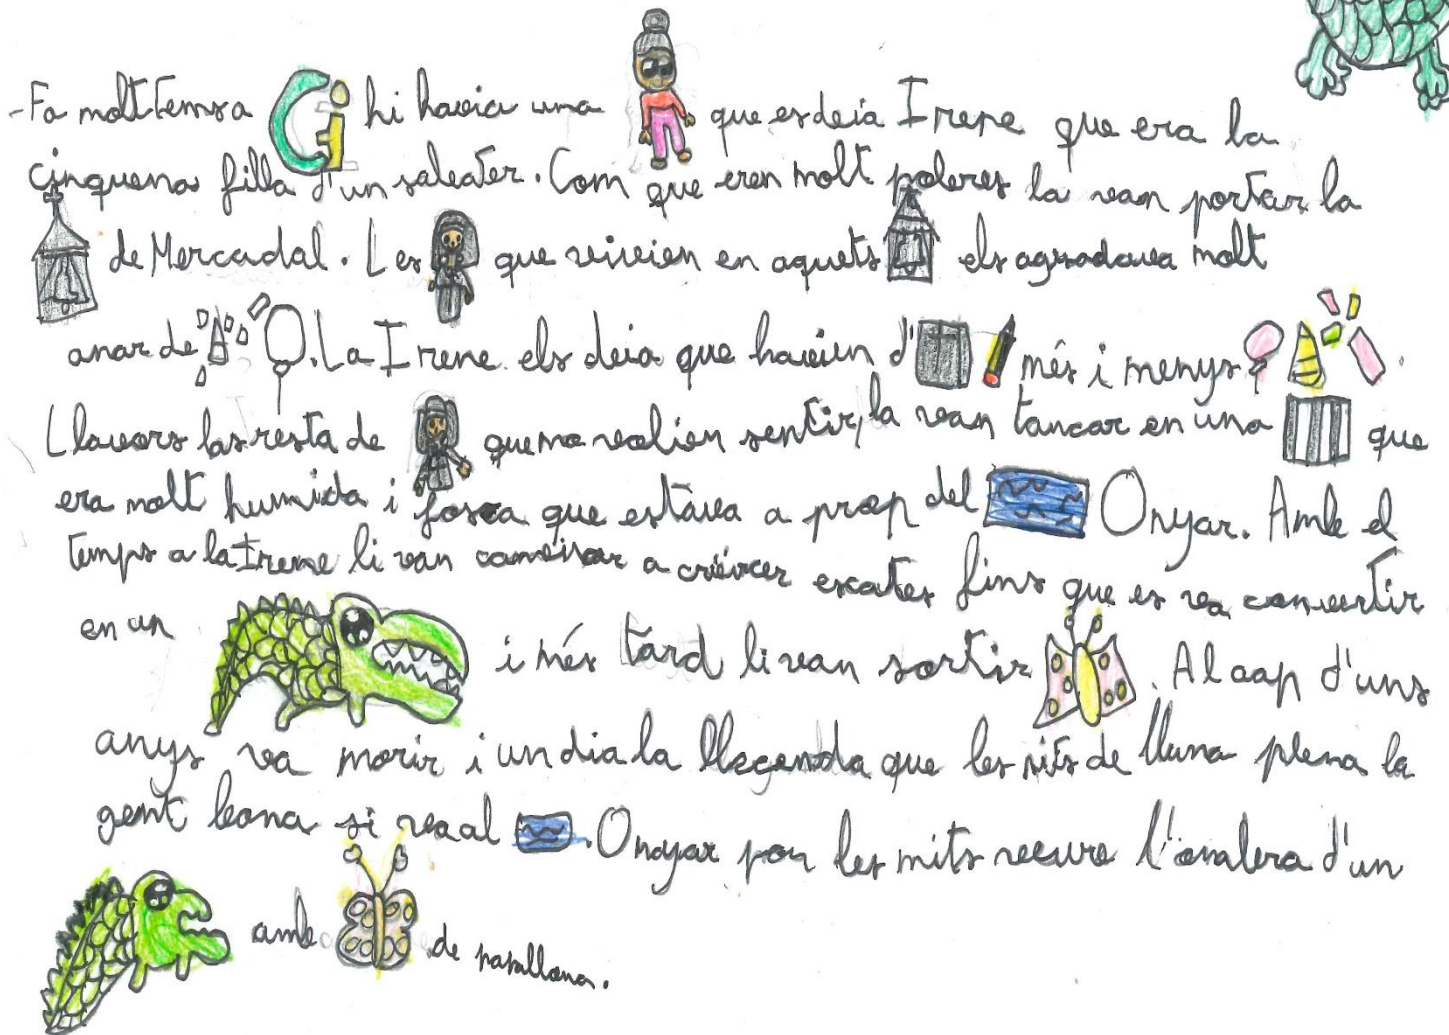 -Fa molt temps a Gi hi havia una que es deia Irene que era la
cinquena filla d'un sabater. Com que eren molt pobres la van portar la
de Mercadal. Les que vivien en aquets els agradava molt
anar de . La Irene els deia que havien d' més i menys .
Llavors las resta de que no volien sentir, la van tancar en una que
era molt humida i fosca que estava a prop del Onyar. Amb el
temps a la Irene li van a créixer escates fins que es va convertir
en un i més tard li van sortir . Al cap d'uns
anys va morir i un dia la llegenda que les nits de lluna plena la
gent bona si va al Onyar per les nits veure l'ombra d'un
amb de papallona.